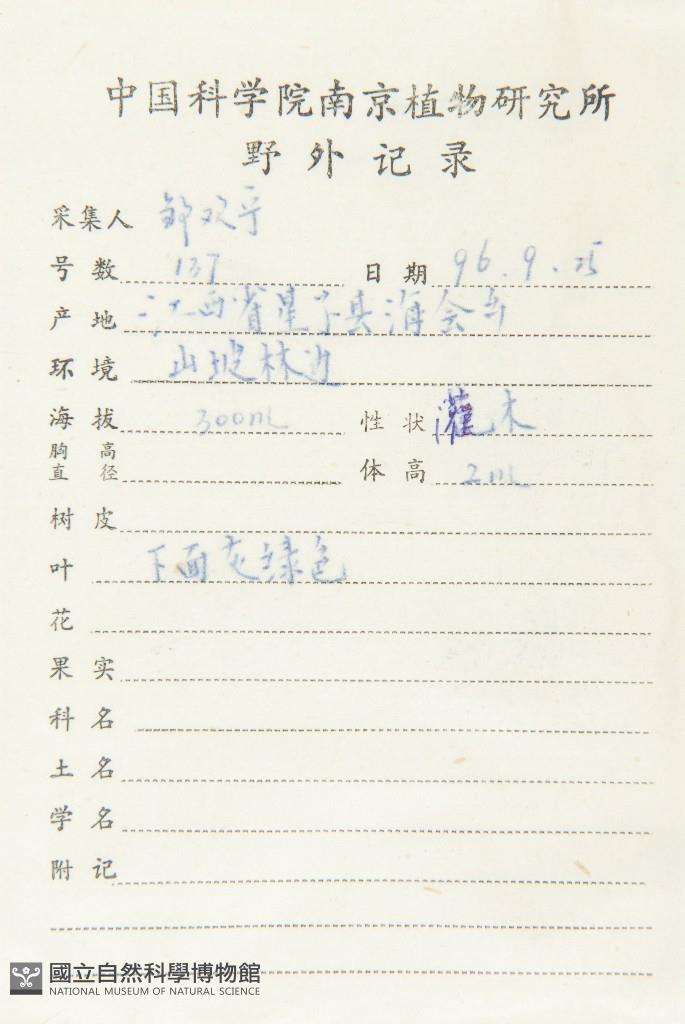 中国科学院南京植物研究所
野外记录
采集人 邹欢平
号数 137 日期 96.9.25
产地 江西省星子县海会乡
环境 山坡林边
海拔 300m 性状 灌木
胸高直径 体高 2m
树皮
叶 下面灰绿色
花
果实
科名
土名
学名
附记
國立自然科學博物館
NATIONAL MUSEUM OF NATURAL SCIENCE